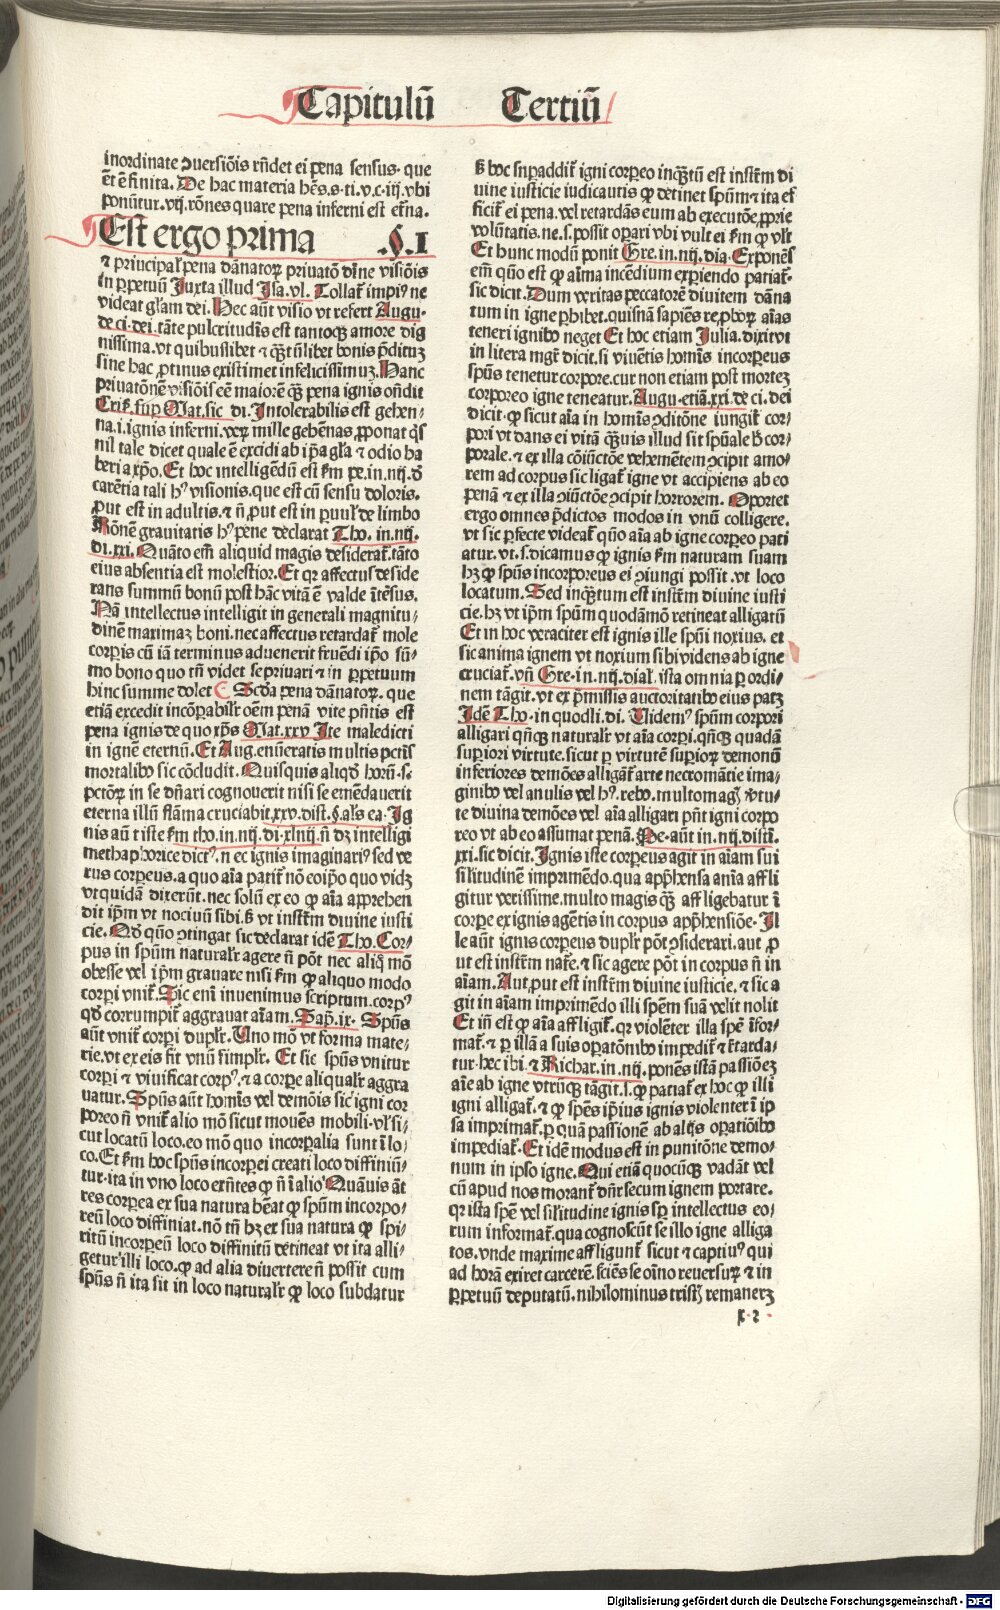 Capitulū Tertiū
inordinate ꝯversiōis rñdet ei pena sensus. que
ēt ē finita. De hac materia hēs.s.ti.v.c.iij.vbi
ponūtur.vij.rōnes quare pena inferni est etna.
Est ergo prima .§.I
⁊ principal' pena dānatoꝝ privatō dīne visiōis
in ꝑpetuum Juxta illud Isa.vl. Tollat' impiꝰ ne
videat glam dei. Hec aūt visio vt refert Augu.
de ci.dei. tāte pulcritudīs est tantoqꝫ amore dig
nissima.vt quibuslibet ⁊ qꝫtūlibet bonis p̄dituꝫ
sine hac ꝓtinus existimet infelicissimuꝫ. Hanc
privatōnē visiōis eē maiorē qꝫ pena ignis oñdit
Cris. sup Mat. sic di. Intolerabilis est gehen/
na.i.ignis inferni.veꝝ mille gehēnas ꝓponat qͥs
nil tale dicet quale ē excidi ab ip̄a gl'a ⁊ odio ha
beri a xp̄o. Et hoc intelligēdū est ẜm pe.in.iiij.ꝺ
carētia tali hꝰ visionis.que est cū sensu doloris.
ꝓut est in adultis.⁊ ñ ꝓut est in ꝑvul' de limbo
Rōnē gravitatis hꝰ pene declarat Tho. in.iiij.
di.xxi. Quāto em̄ aliquid magis desiderat' tāto
eius absentia est molestior. Et qꝛ affectus deside
rans summū bonū post hāc vitā ē valde ītēsus.
Nā intellectus intelligit in generali magnitu/
dinē maximaꝫ boni.nec affectus retardat' mole
corꝑis cū iā terminus advenerit fruēdi ip̄o sū/
mo bono quo tñ videt se privari ⁊ in ꝑpetuum
hinc summe dolet Scd̄a pena dānatoꝝ. que
etiā excedit incōꝑabilit' oēm penā vite p̄ntis est
pena ignis de quo xp̄s Mat.xxv Ite maledicti
in ignē eternū. Et Aug. enūeratis multis pctīs
mortalibꝰ sic cōcludit. Quisquis aliqd̄ horū.s.
pctōꝝ in se dñari cognoverit nisi se emēdaverit
eterna illū flāma cruciabit.xxv.dist.§.al's ea. Ig
nis aūt iste ẜm tho.in.iiij.di.xliiij ñ dꝫ intelligi
methaphorice dictꝰ.nec ignis imaginariꝰ sed ve
rus corꝑeus.a quo aīa patit' nō eoip̄o quo vidꝫ
vt quidā dixerūt.nec solū ex eo qꝙ aīa apprehen
dit ip̄m vt nocivū sibi.ẞ vt instr̄m divine iusti
cie. Ad qūo ꝯtingat sic declarat idē Tho. Cor/
pus in spūm naturalr̄ agere ñ pōt nec aliqͦ mō
obesse vel ip̄m gravare nisi ẜm qꝙ aliquo modo
corꝑi vnit'. Sic eni invenimus scriptum.corpꝰ
qd̄ corrumpit' aggravat aīam. Sap̄.ix. Spūs
aūt vnit' corꝑi duplr̄. Uno mō vt forma mate/
rie.vt ex eis fit vnū simplr̄. Et sic spūs vnitur
corꝑi ⁊ vivificat corpꝰ.⁊ a corꝑe aliqualr̄ aggra
vatur. Spūs aūt homīs vel demōis sic igni cor
poreo ñ vnit' alio mō sicut movēs mobili.vl' si/
cut locatū loco.eo mō quo incorꝑalia sunt ī lo/
co. Et ẜm hoc spūs incorꝑei creati loco diffiniū/
tur.ita in vno loco exñtes qꝙ ñ ī alio Quāvis āt
res corꝑea ex sua natura hēat qꝙ spūm incorpo/
reū loco diffiniat.nō tñ hꝫ ex sua natura qꝙ spi/
ritū incorꝑeū loco diffinitū detineat vt ita alli/
getur illi loco.qꝙ ad alia divertere ñ possit cum
spūs ñ ita sit in loco naturalr̄ qꝙ loco subdatur
ẞ hoc suꝑaddit' igni corꝑeo inqꝫtū est instr̄m di
vine iusticie iudicantis qꝙ detinet spūm ⁊ ita ef
ficit' ei pena.vel retardās eum ab executōe ꝓprie
volūtatis.ne.s.possit oꝑari vbi vult ei ẜm qꝙ vl't
Et hunc modū ponit Gre.in.iiij.dia. Exponēs
em̄ qūo est qꝙ aīma incēdium exꝑiendo patiat'.
sic dicit. Dum veritas peccatorē divitem dāna
tum in igne ꝑhibet.quisnā sapiēs reꝓboꝝ aīas
teneri ignibꝰ neget Et hoc etiam Julia. dixit vt
in litera mgr̄ dicit.si viuētis homīs incorꝑeus
spūs tenetur corꝑore.cur non etiam post mortez
corporeo igne teneatur. Augu. etiā.xxi.de ci.dei
dicit.qꝙ sicut aīa in homīs ꝯditōne iungit' cor/
pori vt dans ei vitā qꝫvis illud sit spūale h̄ cor/
porale.⁊ ex illa cōiūctōe vehemētem ꝯcipit amo/
rem ad corpus sic ligat' igne vt accipiens ab eo
penā ⁊ ex illa ꝯiūctōe ꝯcipit horrorem. Oportet
ergo omnes p̄dictos modos in vnū colligere.
vt sic ꝑfecte videat' qūo aīa ab igne corꝑeo pati
atur.vt.s.dicamus qꝙ ignis ẜm naturam suam
hꝫ qꝙ spūs incorꝑoreus ei ꝯiungi possit.vt loco
locatum. Sed inqꝫtum est instr̄m divine iusti
cie.hꝫ vt ip̄m spūm quodāmō retineat alligatū
Et in hoc veraciter est ignis ille spūi noxius. et
sic anima ignem vt noxium sibi vidēns ab igne
cruciat'.vñ Gre.in.iiij.dial'. ista omnia ꝑ ordi/
nem tāgit.vt ex p̄missis auctoritatibꝰ eius patꝫ
Idē Tho. in quodli.di. Uidemꝰ spūm corpori
alligari qñqꝫ naturalr̄ vt aīa corꝑi.qñqꝫ quadā
suꝑiori virtute.sicut ꝑ virtutē suꝑioꝝ demonū
inferiores demōes alligāt' arte necromātie ima/
ginibꝰ vel anulis vel hꝰ.rebꝰ.multomagꝭ v̄tu/
te divina demōes vel aīa alligari pn̄t igni corpo
reo vt ab eo assumat penā. Pe. aūt in.iiij.distī.
xxi.sic dicit. Ignis iste corꝑeus agit in aīam sui
sil'itudinē imprimēdo.qua app̄hensa anīa affli
gitur verissime.multo magis qꝫ affligebatur ī
corꝑe ex ignis agētis in corpus app̄hensiōe. Il
le aūt ignis corꝑeus duplr̄ pōt ꝯsiderari.aut ꝓ
ut est instr̄m nat̄e.⁊ sic agere pōt in corpus ñ in
aīam. Aut ꝓut est instr̄m divine iusticie.⁊ sic a
git in aīam imprimēdo illi spēm suā velit nolit
Et in̄ est qꝙ aīa affligit'.qꝛ violēter illa spē ifor/
mat'.⁊ ꝑ illā a suis oꝑatōnibꝰ impedit' ⁊ r̄tarda/
tur.hec ibi.⁊ Richar.in.iiij.ponēs istā passionēꝫ
aīe ab igne vtrūqꝫ tāgit.s.qꝙ patiat' ex hoc qꝙ illi
igni alligat'.⁊ qꝙ spēs ip̄ius ignis violenter ī ip
sa imprimat'.ꝑ quā passionē ab alijs oꝑatiōibꝰ
impediat'. Et idē modus est in punitōne demo/
num in ipso igne. Qui etiā quocūqꝫ vadāt vel
cū apud nos morant' dñr secum ignem portare.
qꝛ ista spēs vel sil'itudine ignis sꝑ intellectus eo/
rum informat'.qua cognoscūt se illo igne alliga
tos.vnde maxime affligunt' sicut ⁊ captivꝰ qui
ad horā exiret carcerē.sciēs se oīno reversuꝝ ⁊ in
ꝑpetuū deputatū.nihilominus tristꝭ remanerꝫ
x 2
Digitalisierung gefördert durch die Deutsche Forschungsgemeinschaft - DFG